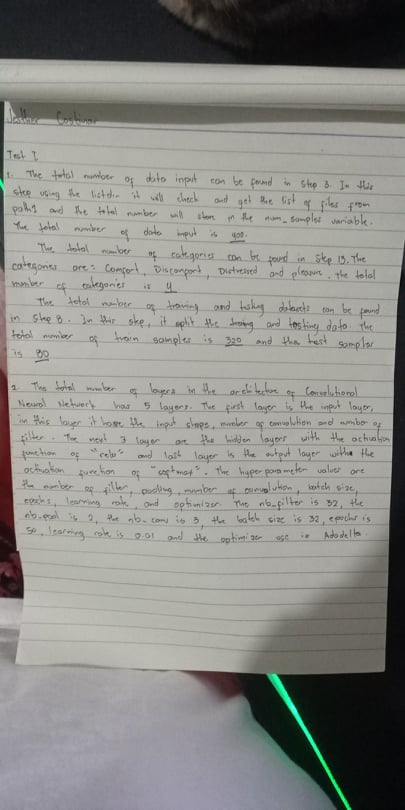 Costinar
Test I
1. The total number of data input can be found in Step 3. In this
step using the listdir it will check and get the list of files from
path1 and the total number will store in the num_samples variable.
The total number of data input is 400.
The total number of categories can be found in Step 13. The
categories are: Comfort, Discomfort, Distressed and pleasure. The total
number of categories is 4
The total number of training and testing datasets can be found
in Step 8. In this step, it split the training and testing data. The
total number of train samples is 320 and the test samples
is 80
2. The total number of layers in the architecture of Convolutional
Neural Network has 5 layers. The first layer is the input layer,
in this layer it have the input shape, number of convolution and number of
filter. The next 3 layer are the hidden layers with the activation
function of "relu" and last layer is the output layer with the
activation function of "softmax". The hyperparameter values are
the number of filter, pooling, number of convolution, batch size,
epochs, learning rate, and optimizer. The nb_filter is 32, the
nb-pool is 2, the nb-conv is 3, the batch size is 32, epochs is
50, learning rate is 0.01 and the optimizer use is Adadelta.